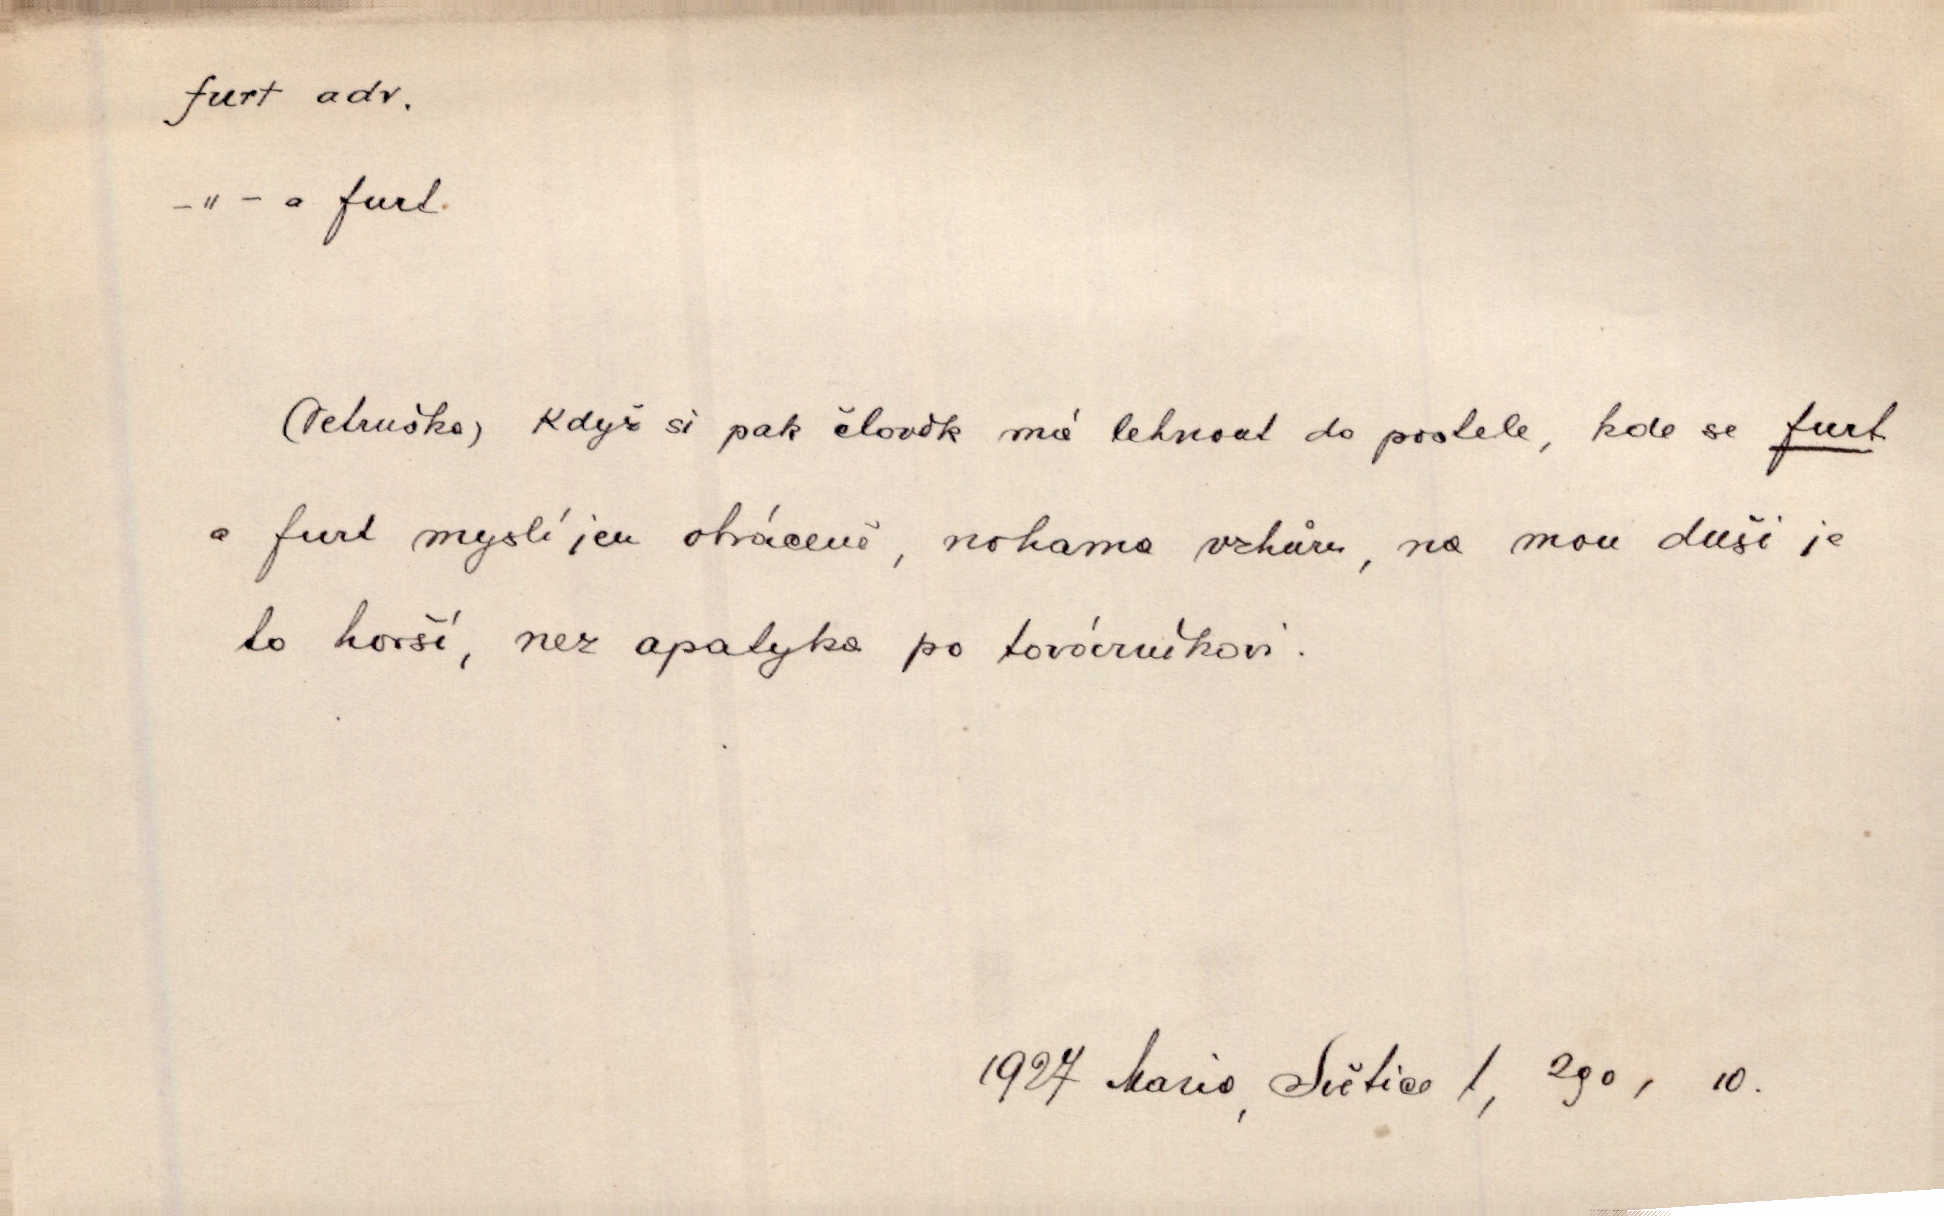 furt adv.
–"– a furt.
(Petruška) Když si pak člověk má lehnout do postele, kde se furt
a furt myslí jen obráceně, nohama vzhůru, na mou duši je
to horší, nez apatyka po továrníkovi.
1927 Maria, Světice 1, 290, 10.